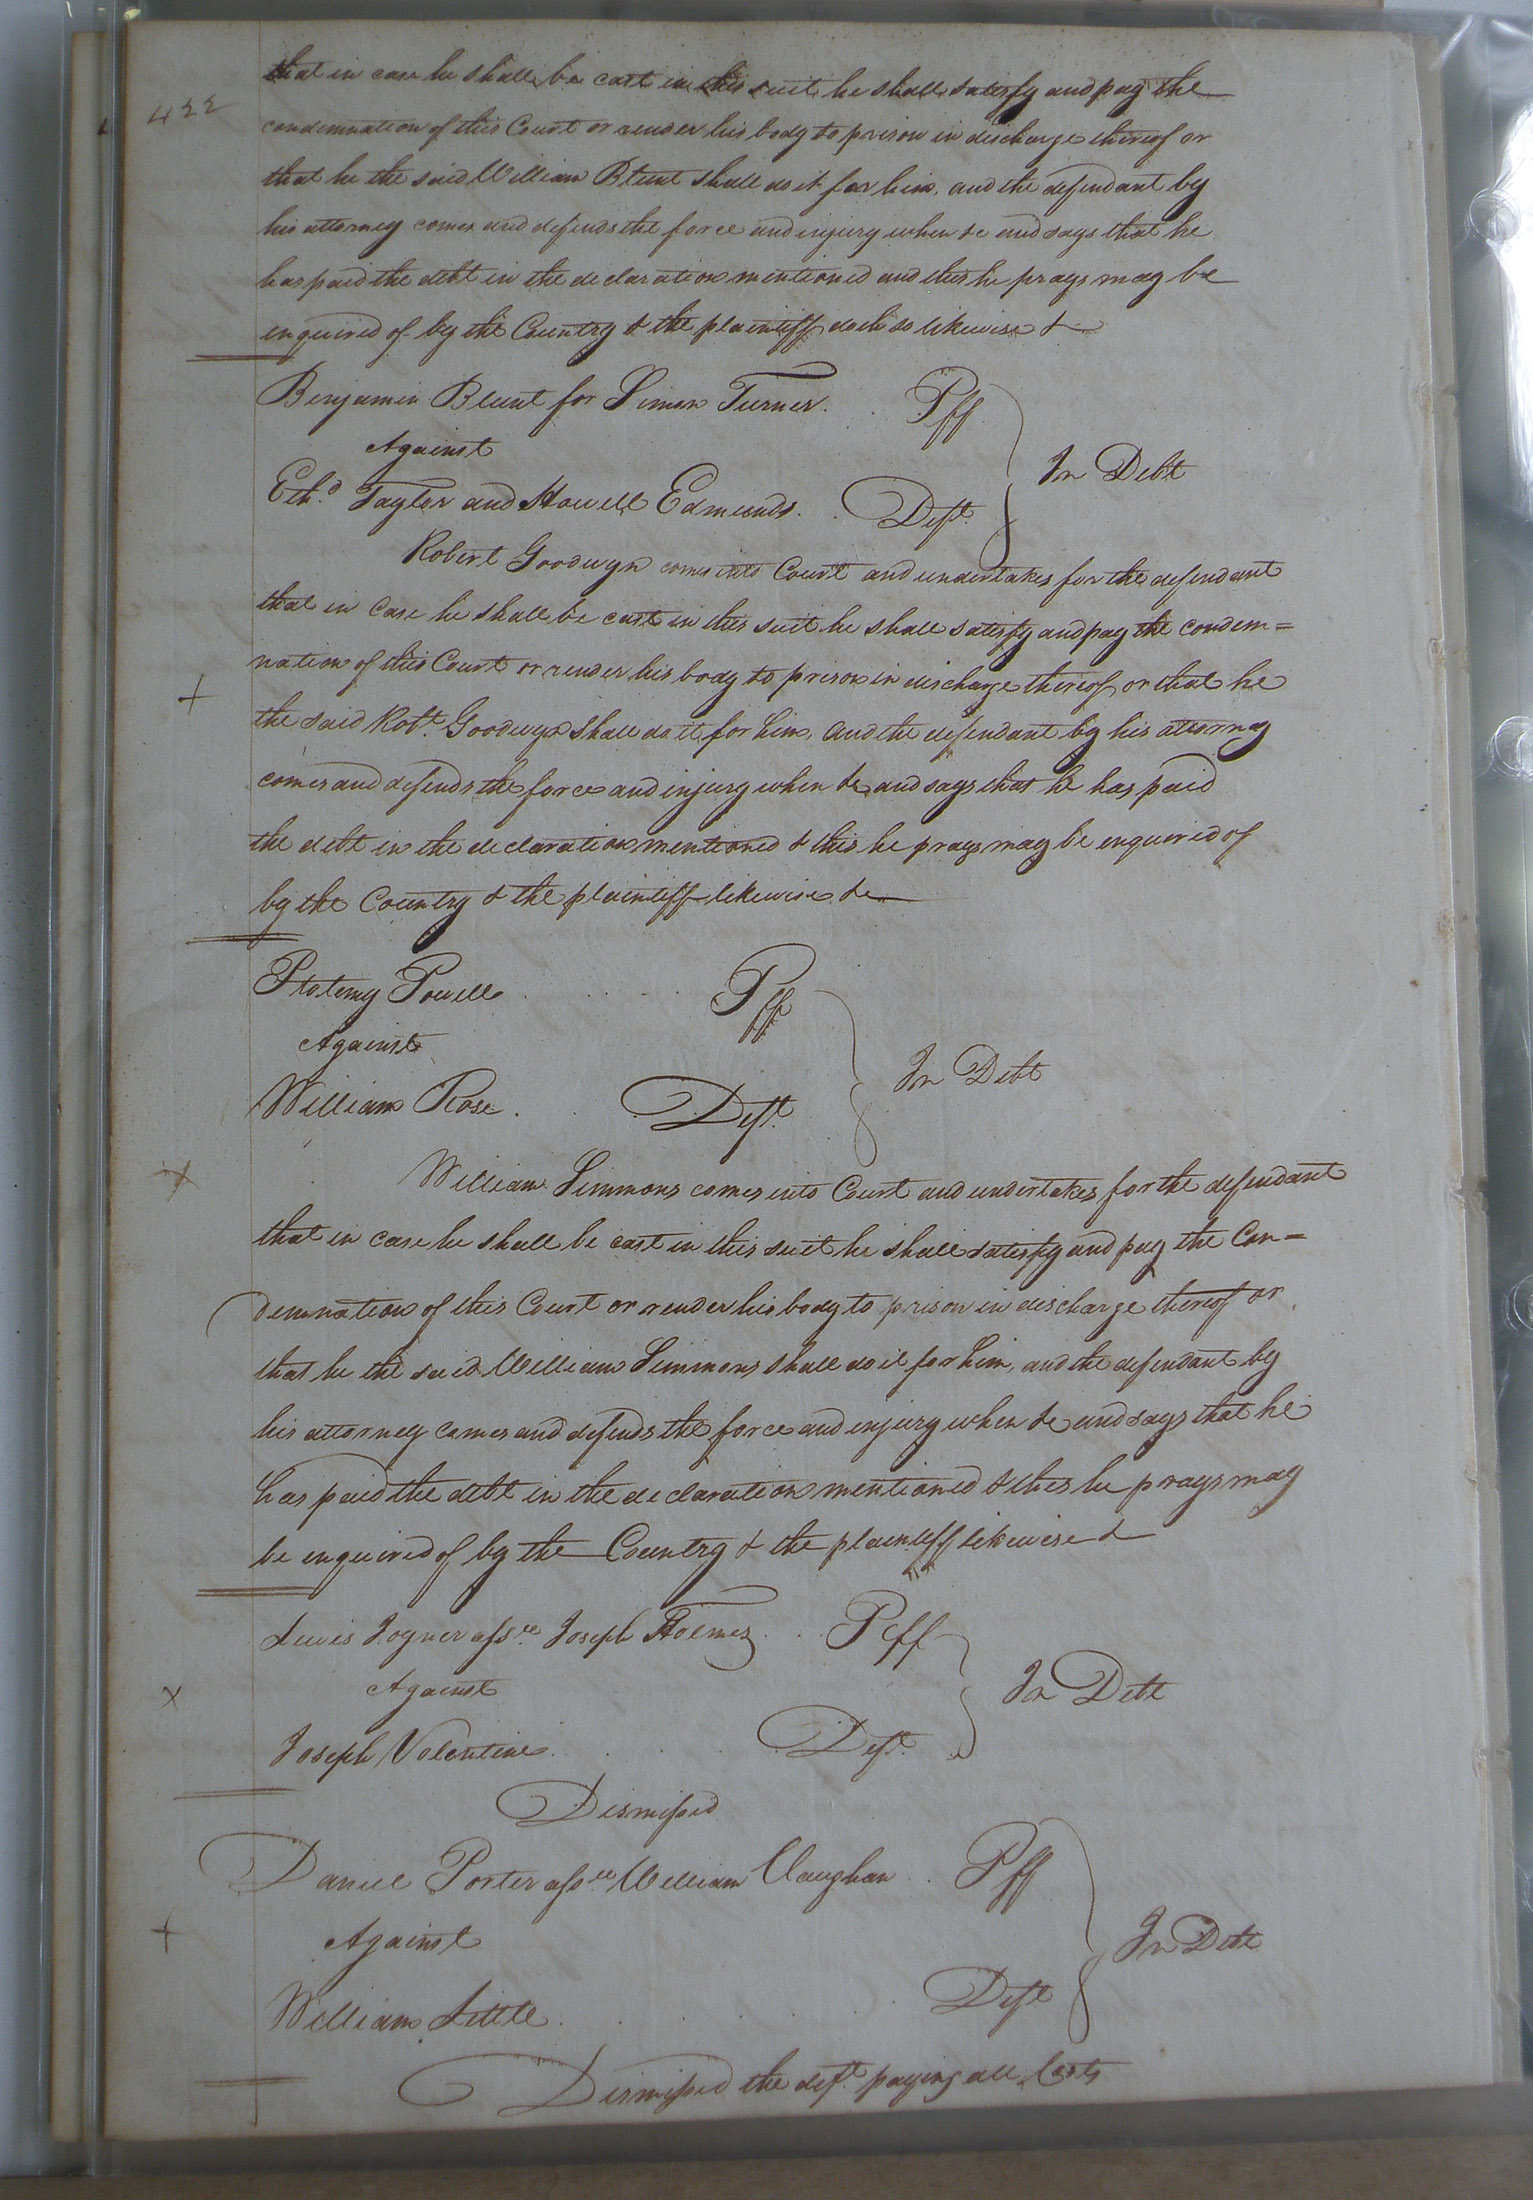 422
that in case he shall be cast in this suit he shall satisfy and pay the
condemnation of this Court or render his body to prison in discharge thereof or
that he the said William Blunt shall do it for him, and the defendant by
his attorney comes and defends the force and injury when &c and says that he
has paid the debt in the declaration mentioned and this he prays may be
enquired of by the Country & the plaintiff doth so likewise &
Benjamin Blunt for Simon Turner. . Pff
Against
In Debt
Eth.d Taylor and Howell Edmunds. . Deft.
Robert Goodwyn comes into Court and undertakes for the defendant
that in Case he shall be cast in this suit he shall satisfy and pay the condem=
nation of this Court or render his body to prison in discharge thereof or that he
the said Robt. Goodwyn shall do it for him, and the defendant by his attorney
comes and defends the force and injury when &c and says that he has paid
the debt in the declaration mentioned & this he prays may be enquired of
by the Country & the plaintiff likewise &c
Ptolemy Powell . . . . Pff
Against
In Debt
William Rose. . . Deft.
William Simmons comes into Court and undertakes for the defendant
that in case he shall be cast in this suit he shall satisfy and pay the Con=
demnation of this Court or render his body to prison in discharge thereof or
that he the said William Simmons shall do it for him, and the defendant by
his attorney comes and defends the force and injury when &c and says that he
has paid the debt in the declaration mentioned & this he prays may
be enquired of by the Country & the plaintiff likewise &
Lewis Joyner assee. Joseph Holmes . . Peff
Against
In Debt
Joseph Valentine . . . Deft.
Dismissed
Daniel Porter assee. William Vaughan . . Pff
Against
In Debt
William Little . . . . Deft
Dismissed the deft. paying all Costs